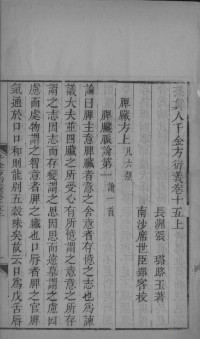 孫真人千金方衍義卷十五上
長洲張　璐路玉著
南沙席世臣郢客校
脾臟方上 凡六類
脾臟脈論第一 論一首
論曰脾主意脾臟者意之舍意者存憶之志也為諫
議大夫並四臟之所受心有所憶謂之意意之所存
謂之志因志而存變謂之思因思而遠慕謂之慮因
慮而處物謂之智意者脾之臟也口唇者脾之官脾
氣通於口口和則能別五穀味矣故云口為戊舌唇